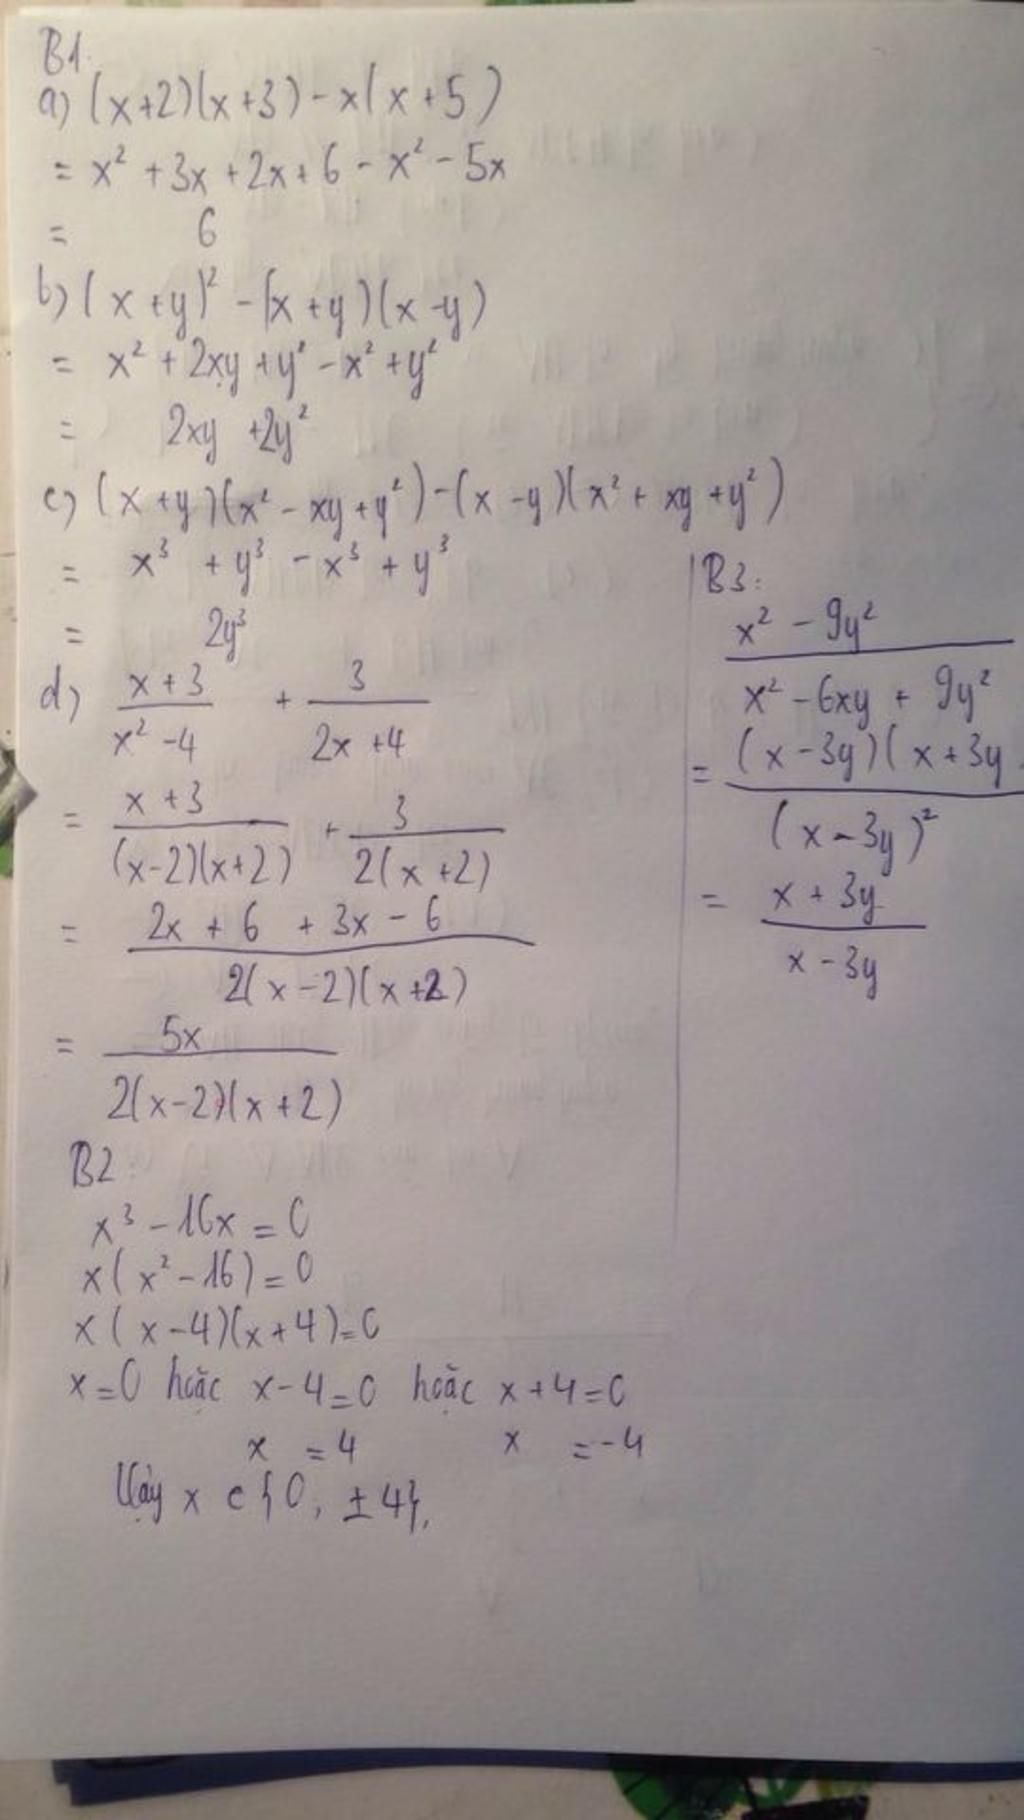 B1.
a) (x+2)(x+3) - x(x+5)
= x² + 3x + 2x + 6 - x² - 5x
= 6
b) (x+y)² - (x+y)(x-y)
= x² + 2xy + y² - x² + y²
= 2xy + 2y²
c) (x+y)(x² - xy + y²) - (x-y)(x² + xy + y²)
= x³ + y³ - x³ + y³
= 2y³
d) (x+3)/(x²-4) + 3/(2x+4)
= (x+3)/((x-2)(x+2)) + 3/(2(x+2))
= (2x + 6 + 3x - 6)/(2(x-2)(x+2))
= 5x/(2(x-2)(x+2))
B2:
x³ - 16x = 0
x(x² - 16) = 0
x(x-4)(x+4) = 0
x = 0 hoặc x - 4 = 0 hoặc x + 4 = 0
x = 4 x = -4
Vậy x ∈ {0, ±4}.
B3:
(x² - 9y²)/(x² - 6xy + 9y²)
= (x-3y)(x+3y/(x-3y)²
= (x+3y)/(x-3y)